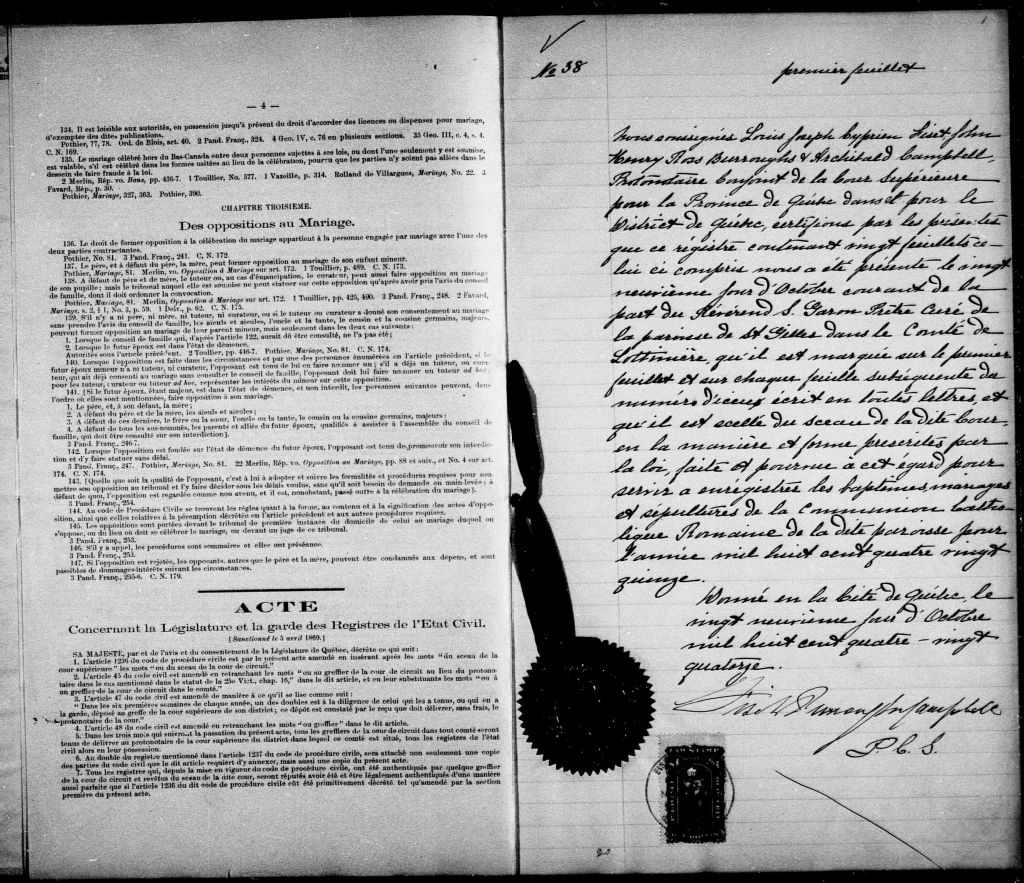 — 4 —
134. Il est loisible aux autorités, en possession jusqu'à présent du droit d'accorder des licences ou dispenses pour mariage,
d'exempter des dites publications.
Pothier, 77, 78. Ord. de Blois, art. 40. 2 Pand. Franç., 324. 4 Geo. IV, c. 76 en plusieurs sections. 35 Geo. III, c. 4, s. 4.
C. N. 169.
135. Le mariage célébré hors du Bas-Canada entre deux personnes sujettes à ses lois, ou dont l'une seulement y est soumise,
est valable, s'il est célébré dans les formes usitées au lieu de la célébration, pourvu que les parties n'y soient pas allées dans le
dessein de faire fraude à la loi.
2 Merlin, Rép. vo. Bans, pp. 436-7. 1 Touillier, No. 577. 1 Vazeille, p. 314. Rolland de Villargues, Mariage, No. 22. 3
Favard, Rép., p. 30.
Pothier, Mariage, 327, 363. Pothier, 390.
CHAPITRE TROISIEME.
Des oppositions au Mariage.
136. Le droit de former opposition à la célébration du mariage appartient à la personne engagée par mariage avec l'une des
deux parties contractantes.
Pothier, No. 81. 3 Pand. Franç., 241. C. N. 172.
137. Le père, et à défaut du père, la mère, peut former opposition au mariage de son enfant mineur.
Pothier, Mariage, 81. Merlin, vo. Opposition à Mariage sur art. 173. 1 Touillier, p. 489. C. N. 173.
138. A défaut de père et de mère, le tuteur, ou, au cas d'émancipation, le curateur, peut aussi faire opposition au mariage
de son pupille; mais le tribunal auquel elle est soumise ne peut statuer sur cette opposition qu'après avoir pris l'avis du conseil
de famille, dont il doit ordonner la convocation.
Pothier, Mariage, 81. Merlin, Opposition à Mariage sur art. 172. 1 Touillier, pp. 425, 490. 3 Pand. Franç., 248. 2 Favard,
Mariage, s. 2, § 1, No. 3, p. 59. 1 Delv., p. 62. C. N. 175.
139. S'il n'y a ni père, ni mère, ni tuteur, ni curateur, ou si le tuteur ou curateur a donné son consentement au mariage
sans prendre l'avis du conseil de famille, les aieuls et aieules, l'oncle et la tante, le cousin et la cousine germains, majeurs,
peuvent former opposition au mariage de leur parent mineur, mais seulement dans les deux cas suivants:
1. Lorsque le conseil de famille qui, d'après l'article 122, aurait dû être consulté, ne l'a pas été;
2. Lorsque le futur époux est dans l'état de démence.
Autorités sous l'article précédent. 2 Toullier, pp. 416-7. Pothier, Mariage, No. 81. C. N. 174.
140. Lorsque l'opposition est faite dans les circonstances et par une des personnes énumérées en l'article précédent, si le
futur époux mineur n'a ni tuteur, ni curateur, l'opposant est tenu de lui en faire nommer un; s'il a déjà un tuteur, ou cura-
teur, qui ait déjà consenti au mariage sans consulter le conseil de famille, l'opposant doit lui faire nommer un tuteur ad hoc,
pour les tuteur, curateur ou tuteur ad hoc, représenter les intérêts du mineur sur cette opposition.
141. [Si le futur époux, étant majeur, est dans l'état de démence, et non interdit, les personnes suivantes peuvent, dans
l'ordre où elles sont mentionnées, faire opposition à son mariage.
1. Le père, et, à son défaut, la mère;
2. A défaut du père et de la mère, les aieuls et aieules;
3. A défaut de ces derniers, le frère ou la sœur, l'oncle ou la tante, le cousin ou la cousine germains, majeurs:
4. A défaut de tous les sus-nommés, les parents et alliés du futur époux, qualifiés à assister à l'assemblée du conseil de
famille, qui doit être consulté sur son interdiction].
3 Pand. Franç., 246-7.
142. Lorsque opposition est fondée sur l'état de démence du futur époux, l'opposant est tenu de promouvoir son interdic-
tion et d'y faire statuer sans délai.
3 Pand. Franç., 247. Pothier, Mariage, No. 81. 22 Merlin, Rép. vo. Opposition au Mariage, pp. 88 et suiv., et No. 4 sur art.
174. C. N. 174.
143. [Quelle que soit la qualité de l'opposant, c'est à lui à adopter et suivre les formalités et procédures requises pour sou-
mettre son opposition au tribunal et l'y faire décider sous les délais voulus, sans qu'il soit besoin de demande en main-levée; à
défaut de quoi, l'opposition est regardée comme non avenu, et il est, nonobstant, passé outre à la célébration du mariage].
3 Pand. Franç., 254.
144. Au code de Procédure Civile se trouvent les règles quant à la forme, au contenu et à la signification des actes d'oppo-
sition, ainsi que celles relatives à la péremption décrétée en l'article précédent et aux autres procédures requises.
145. Les oppositions sont portées devant le tribunal de première instance du domicile de celui au mariage duquel on
s'oppose, ou du lieu où doit se célébrer le mariage, ou devant un juge de ce tribunal.
3 Pand. Franç., 253.
146. S'il y a appel, les procédures sont sommaires et elles ont préséance.
3 Pand. Franç., 253.
147. Si l'opposition est rejetée, les opposants, autres que le père et la mère, peuvent être condamnés aux dépens, et sont
passibles de dommages-intérêts suivant les circonstances.
3 Pand. Franç., 255-6. C. N. 179.
ACTE
Concernant la Législature et la garde des Registres de l'Etat Civil.
[Sanctionné le 5 avril 1869.]
SA MAJESTÉ, par et de l'avis et du consentement de la Législature de Québec, décrète ce qui suit:
1. L'article 1236 du code de procédure civile est par le présent acte amendé en insérant après les mots "du sceau de la
cour supérieure" les mots "ou du sceau de la cour de circuit."
2. L'article 45 du code civil est amendé en retranchant les mots "ou au greffier de la cour de circuit au lieu du protono-
taire dans le cas mentionné dans le statut de la 25e Vict., chap. 16," dans le dit article, et en leur substituants les mots "ou à
un greffier de la cour de circuit dans le comté."
3. L'article 47 du code civil est amendé de manière à ce qu'il se lise comme suit:
"Dans les six premières semaines de chaque année, un des doubles est à la diligence de celui qui les a tenus, ou qui en a
la garde, déposé au greffe de la cour supérieure de son district, ce dépôt est constaté par le reçu que doit délivrer, sans frais, le
protonotaire de la cour."
4. L'article 48 du code civil est amendé en retranchant les mots "ou greffier" dans le dit article.
5. Dans les trois mois qui suivront la passation du présent acte, tous les greffiers de la cour de circuit dans tout comté seront
tenus de délivrer au protonotaire de la cour supérieure du district dans lequel ce comté est situé, tous les registres de l'état
civil alors en leur possession.
6. Au double du registre mentionné dans l'article 1237 du code de procédure civile, sera attaché non seulement une copie
des parties du code civil que le dit article requiert d'y annexer, mais aussi une copie du présent acte.
7. Tous les registre qui, depuis la mise en vigueur du code de procédure civile, ont été authentiqués par quelque greffier
de la cour de circuit et revêtus du sceau de la dite cour, seront réputés avoir été et être légalement authentiqués d'une manière
aussi parfaite que si l'article 1236 du dit code de procédure civile eût été primitivement décrété tel qu'amendé par la section
première du présent acte.
1
No 38
premier feuillet
Nous soussignés Louis Joseph Cyprien Fiset John
Henry Ross Burroughs & Archibald Campbell,
Protonotaire Conjoint de la Cour Supérieure
pour la Province de Québec dans et pour le
District de Québec, certifions par les présentes
que ce régistre contenant vingt feuillets ce-
lui ci compris nous a été présenté le vingt
neuvième jour d'Octobre courant de la
part du Révérend S. Garon Prêtre Curé de
la paroisse de St Gilles dans le Comté de
Lotbinière, qu'il est marqué sur le premier
feuillet et sur chaque feuille subséquente du
numéro d'iceux écrit en toutes lettres, et
qu'il est scellé du sceau de la dite Cour,
en la manière et forme prescrites par
la loi, faite et pourvue à cet égard pour
servir a enrégistrer les baptêmes, mariages
et sépultures de la Communion Catho-
lique Romaine de la dite paroisse pour
l'année mil huit cent quatre vingt
quinze.
Donné en la Cité de Québec, le
vingt neuvième jour d'Octobre
mil huit cent quatre-vingt
quatorze.
Fiset Burroughs Campbell
P. C. S.
20